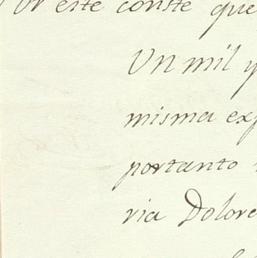 Por este conste que
Un mil y
misma exp
portanto
ria Dolore